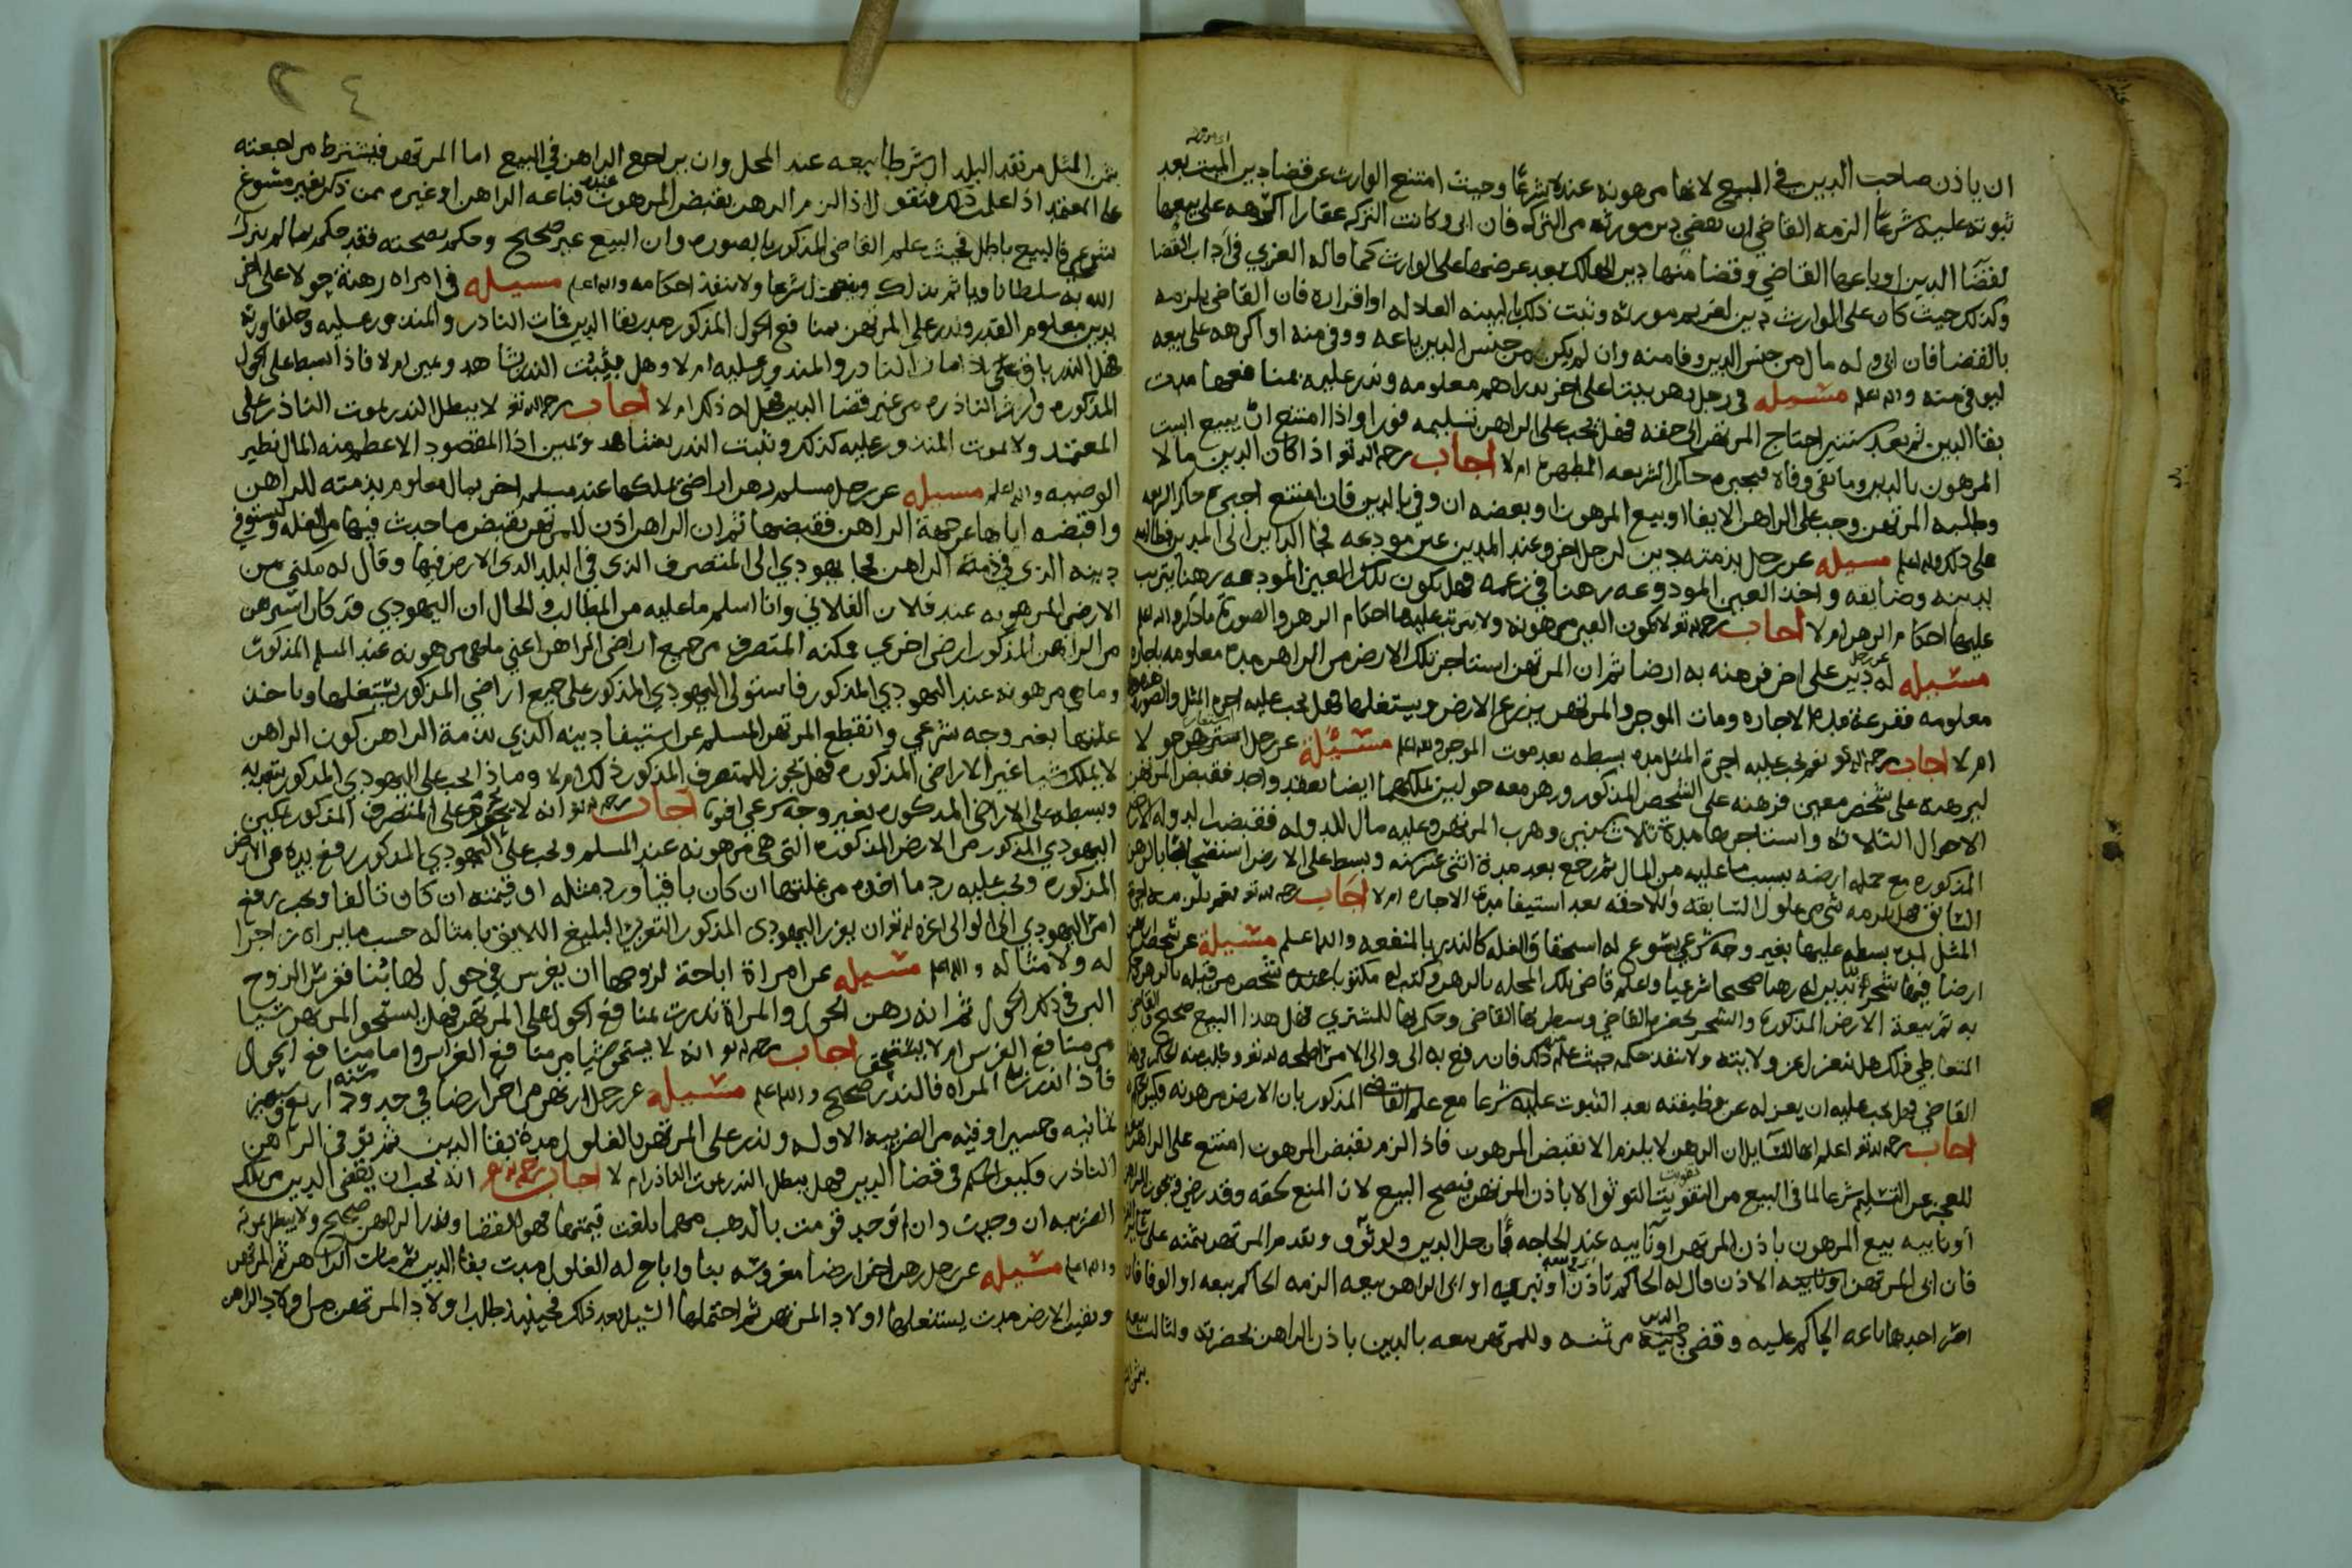 ان ياذن صاحب الدين في المبيع لانها مرهونه عنده شرعًا وحيث امتنع الوارث عن قضا دين الميت بعد
ثبوته عليه شرعًا الزمه القاضي ان يقضي دين مورثه من التركه فان ابى وكانت التركه عقارا اكرهه على بيعها
لقضا الدين او باعها القاضي وقضا منها دين الهالك بعد عرضها على الوارث كما قاله الغزي في آداب القضا
وكذلك حيث كان على الوارث دين لغريم مورثه وثبت ذلك بالبينه العادله او اقراره فان القاضي يلزمه
بالقضا فان ابى وله مال من جنس الدين وفا منه وان لم يكن من جنس الدين باعه ووفى منه او اكرهه على بيعه
ليوفي منه والله اعلم مسئله في رجل رهن بيتا على اخر بدراهم معلومه ونذر عليه بمنافعها مدت
بقا الدين ثم بعد سنتين احتاج المرتهن الى حقه فهل يجب على الراهن تسليمه فورا واذا امتنع ان يبيع البيت
المرهون بالدين وما بقي وفاه يجبره حاكم الشريعه المطهره ام لا اجاب رحمه الله تع اذا كان الدين حالا
وطلبه المرتهن وجب على الراهن الايفا او بيع المرهون او بعضه ان وفى بالدين فان امتنع اجبره حاكم الشريعه
على ذلك والله اعلم مسيله عن رجل بذمته دين لرجل اخر وعند المدين عين مودعه فجا الداين الى المدين فطالبه
بدينه وضايقه واخذ العين المودوعه رهنا في زعمه فهل تكون تلك العين المودعه رهنا يترتب
عليها احكام الرهن ام لا اجاب رحمه الله تع لا تكون العين مرهونه ولا يترتب عليها احكام الرهن والصورة ما ذكر والله اعلم
مسئله عن رجل له دين على اخر فرهنه به ارضا ثم ان المرتهن استاجر تلك الارض من الراهن مده معلومه باجاره
معلومه ففرغة مدة الاجاره ومات الموجر والمرتهن يزرع الارض ويستغلها فهل يجب عليه اجره المثل والصوره هذه
ام لا اجاب رحمه الله تع نعم يجب عليه اجرة المثل مده بسطه بعد موت الموجر والله اعلم مسئلة عن رجل استرهن حولا
ليرهنه على شخص معين فرهنه على الشخص المذكور ورهن معه حولين يملكهما ايضا بعقد واحد فقبض المرتهن
الاحوال الثلاثه واستاجرها مدة ثلاث سنين وهرب المرتهن وعليه مال للدوله فقبضت الدوله الارض
المذكوره مع جمله ارضه بسبب ما عليه من المال ثم رجع بعد مدة اثنى عشر سنه وبسط على الارض
السابق فهل يلزمه شي من غلول السابقه واللاحقه بعد استيفا مدة الاجاره ام لا اجاب رحمه الله تع نعم يلزمه اجرة
المثل لمدة بسطه عليها بغير وجه شرعي يسوغ له استحقاق الغله كالنذر بالمنفعه والله اعلم مسيلة عن شخص رهن
ارضا فيها شجر بدين له رهنا صحيحا شرعيا واعلم قاضي تلك المحله بالرهن وكتب له مكتوبا
به ثم بيعة الارض المذكوره والشجر بحضرة القاضي وسطرها القاضي وحكم بها للمشتري فهل هذا البيع صحيح والقاضي
المتعاطي لذلك هل ينعزل عن ولايته ولا ينفذ حكمه حيث علم ذلك فان رفع به الى والي الامر اصلحه الله تع
القاضي فهل يجب عليه ان يعزله عن وظيفته بعد الثبوت عليه شرعا مع علم القاضي المذكور بان الارض مرهونه
اجاب رحمه الله تع اعلم ايها السايل ان الرهن لا يلزم الا بقبض المرهون فاذا لزم بقبض المرهون امتنع على الراهن بيعه
للعجز عن التسليم شرعا لما في البيع من تفويت التوثق الا باذن المرتهن فيصح البيع لان المنع لحقه وقد رضي
او نايبه بيع المرهون باذن المرتهن او نايبه عند الحاجه فان حل الدين ولو ثوق وتقدم المرتهن بثمنه على
فان ابى المرتهن او نايبه الاذن قال له الحاكم تاذن او تبريه او ابى الراهن بيعه الزمه الحاكم ببيعه او الوفا فان
اصر احدهما باعه الحاكم عليه وقضى الدين من ثمنه وللمرتهن بيعه بالدين باذن الراهن بحضرته ولثالث بيعه
بثمن المثل
٢٤
بثمن المثل من نقد البلد ان شرطا بيعه عند المحل وان يراجع الراهن في البيع اما المرتهن فيشترط مراجعته
على المعتمد اذا علمت ذلك فنقول اذا لزم الرهن بقبض المرهون فباعه الراهن او غيره ممن ذكر بغير مسوغ
شرعي فالبيع باطل فحيث علم القاضي المذكور بالصوره وان البيع غير صحيح وحكم بصحته فقد حكم بما لم ينزل
الله به سلطانا وياثم بذلك وينعزل شرعا ولا تنفذ احكامه والله اعلم مسيله في امراه رهنة حولا على اخر
بدين معلوم القدر ونذر على المرتهن بمنافع الحول المذكور مده بقا الدين فمات الناذر والمنذور عليه وخلفا ورثه
فهل النذر باق على اذا مات الناذر والمنذور عليه ام لا وهل يثبت النذر بشاهد ويمين ام لا فاذا بسط على الحول
المذكوره وارث الناذره من غير قضا الدين فهل له ذلك ام لا اجاب رحمه الله تع لا يبطل النذر بموت الناذر على
المعتمد ولا بموت المنذور عليه كذلك ويثبت النذر بشاهد ويمين اذ المقصود الاعظم منه المال نظير
الوصيه والله اعلم مسيله عن رجل مسلم رهن اراضي يملكها عند مسلم اخر بمال معلوم بذمته للراهن
واقبضه اياها عن جهة الراهن فقبضها ثم ان الراهن اذن للمرتهن بقبض ما حدث فيها من الغله ويستوفي
دينه الذي في ذمة الراهن فجا يهودي الى المتصرف الذي في البلد الذي الارض فيها وقال له مكني من
الارض المرهونه عند فلان الفلاني وانا اسلم ما عليه من المطالب والحال ان اليهودي قد كان استرهن
من الراهن المذكور ارض اخرى فمكنه المتصرف من جميع اراضي الراهن اعني ما هي مرهونه عند المسلم المذكور
وما هي مرهونه عند اليهودي المذكور فاستولى اليهودي المذكور على جميع اراضي المذكور يستغلها وياخذ
غلتها بغير وجه شرعي وانقطع المرتهن المسلم عن استيفا دينه الذي بذمة الراهن كون الراهن
لا يملك شيا غير الاراضي المذكوره فهل يجوز للمتصرف المذكور ذلك ام لا وماذا يجب على اليهودي المذكور بتعديه
وبسطه على الاراضي المذكوره بغير وجه شرعي افتونا اجاب رحمه الله تع انه لا يجوز على المتصرف المذكور تمكين
اليهودي المذكور من الارض المذكوره التي هي مرهونه عند المسلم ويجب على اليهودي المذكور رفع يده عن الارض
المذكوره ويجب عليه رد ما اخذه من غلتها ان كان باقيا ورد مثله او قيمته ان كان تالفا ويجب رفع
امر اليهودي الى الوالي اعزه الله تع ان يعزر اليهودي المذكور التعزير البليغ اللايق بامثاله حسب ما يراه زاجرا
له ولامثاله والله اعلم مسيله عن امراة اباحة لزوجها ان يغرس في حول لها بُنا فغرس الزوج
البن في ذلك الحول ثم انه رهن الحول والمراة نذرت بمنافع الحول على المرتهن فهل يستحق المرتهن شيا
من منافع الغرس ام لا يستحق اجاب رحمه الله تع انه لا يستحق شيا من منافع الغراس واما منافع الحول
فاذا نذرت بها المراه فالنذر صحيح والله اعلم مسيله عن رجل ارتهن من اخر ارضا في حدود سنه اربع وسبعين
بثمانيه وخمسين اوقيه من الضريبه الاوله ونذر على المرتهن بالغلول مدة بقا الدين ثم توفي الراهن
الناذر فكيف الحكم في قضا الدين وهل يبطل النذر بموت الناذر ام لا اجاب رحمه الله تع انه يجب ان يقضى الدين من تلك
الضريبه ان وجدت وان لم توجد قومت بالذهب مهما بلغت قيمتها فهو القضا ونذر الراهن صحيح ولا يبطل بموته
والله اعلم مسيله عن رجل رهن اخر ارضا مغروسه بنا واباح له الغلول مدت بقا الدين ثم مات الراهن ثم المرتهن
وبقيت الارض مدت يستغلها اولاد المرتهن ثم احتملها السيل بعد ذلك فحينئذ طلب اولاد المرتهن من اولاد الراهن